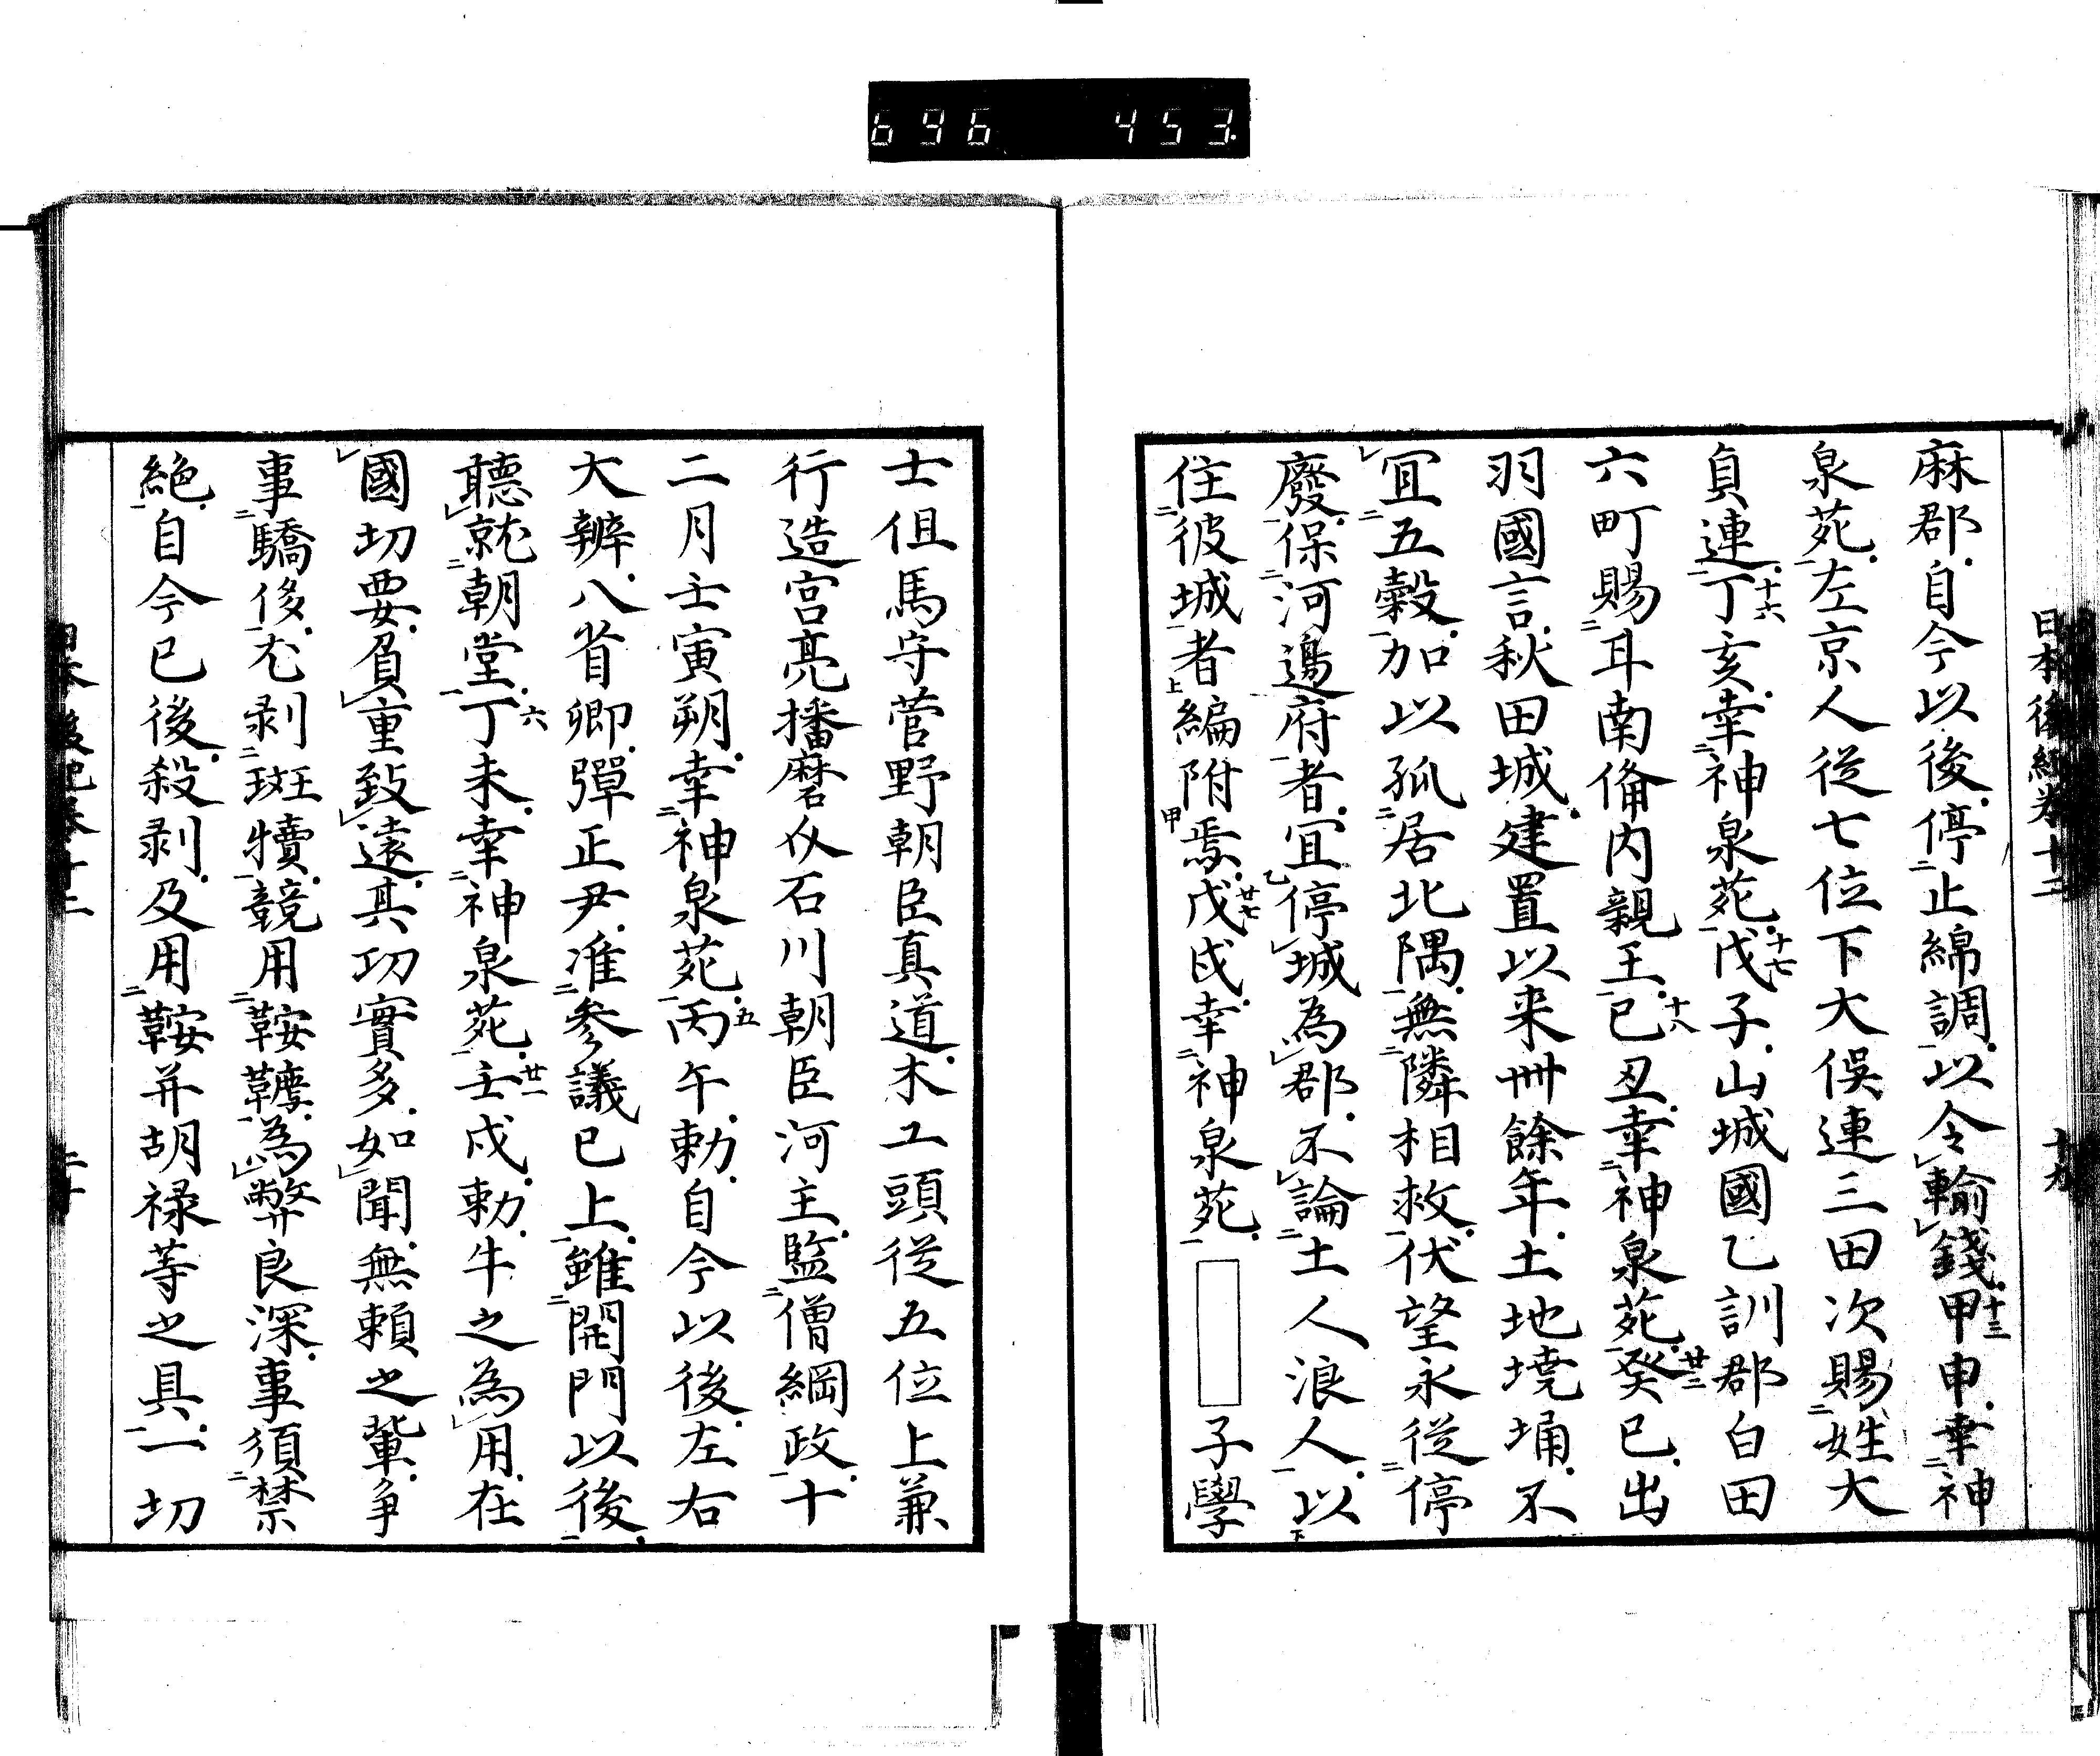 696 453
日本後紀卷十二 十九
麻郡自今以後停止綿調以令輸錢甲申幸神
泉苑左京人從七位下大俣連三田次賜姓大
貞連丁亥幸神泉苑戊子山城國乙訓郡白田
六町賜耳南俻内親王已丑幸神泉苑癸巳出
羽國言秋田城建置以来卌餘年土地墝埆不
宜五穀加以孤居北隅無隣相救伏望永從停
廢保河邊府者宜停城為郡不論土人浪人以
住彼城者編附焉戊戌幸神泉苑 子學
士伹馬守菅野朝臣真道木工頭從五位上兼
行造宮亮播磨介石川朝臣河主監僧綱政十
二月壬寅朔幸神泉苑丙午勅自今以後左右
大辨八省卿彈正尹准參議已上雖開門以後
聽就朝堂丁未幸神泉苑壬戌勅牛之為用在
國切要負重致遠其功實多如聞無頼之輩爭
事驕侈尤剥斑犢競用鞍韉為弊良深事須禁
絶自今已後殺剥及用鞍并胡禄等之具一切
日本後紀卷十二 二十